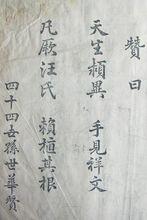 贊曰
天生穎異　手見祥文
凡厥汪氏　賴植其根
四十四世孫世華贊